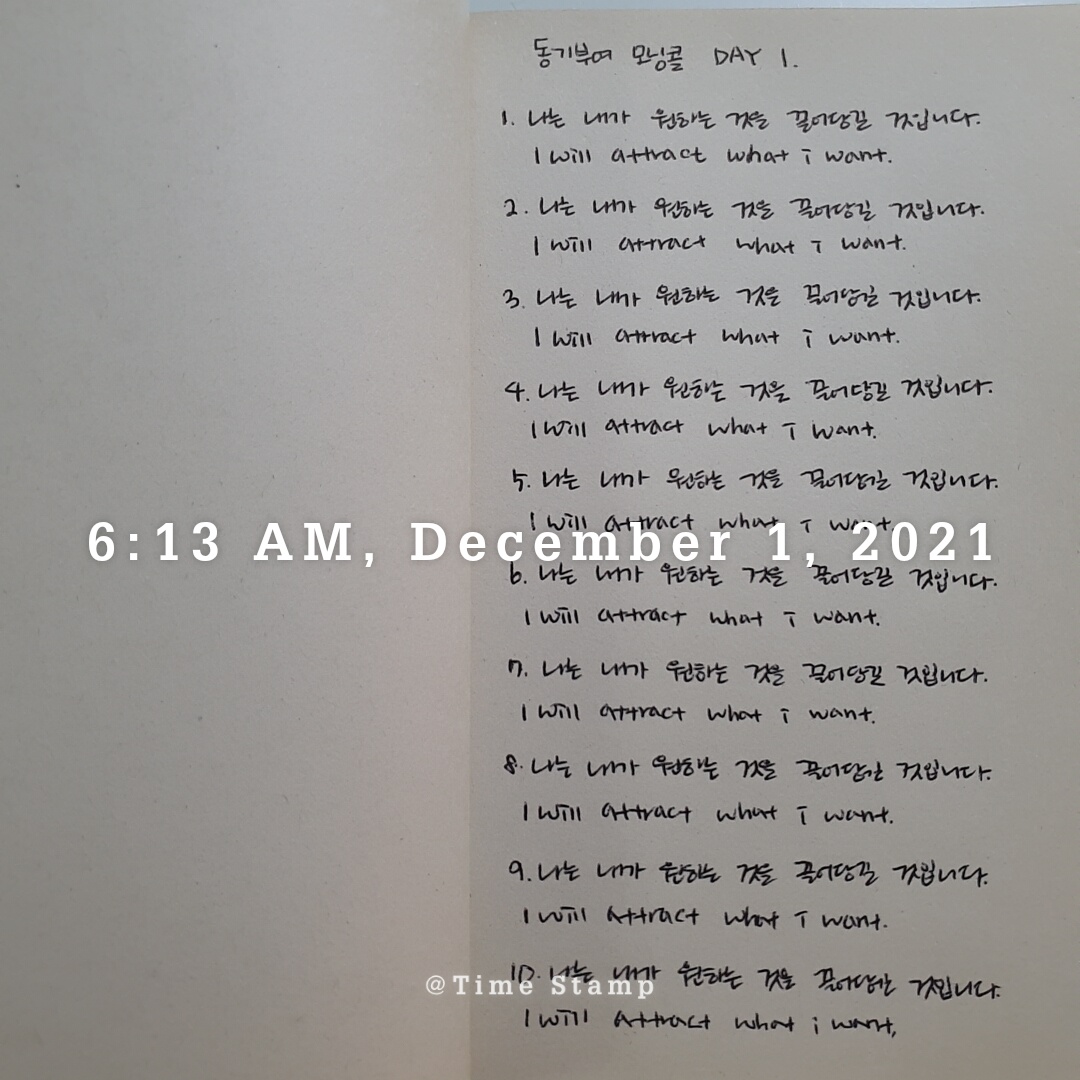 동기부여 모닝콜 DAY 1.
1. 나는 내가 원하는 것을 끌어당길 것입니다.
I will attract what i want.
2. 나는 내가 원하는 것을 끌어당길 것입니다.
I will attract what i want.
3. 나는 내가 원하는 것을 끌어당길 것입니다.
I will attract what i want.
4. 나는 내가 원하는 것을 끌어당길 것입니다.
I will attract what i want.
5. 나는 내가 원하는 것을 끌어당길 것입니다.
I will attract what i want.
6:13 AM, December 1, 2021
6. 나는 내가 원하는 것을 끌어당길 것입니다.
I will attract what i want.
7. 나는 내가 원하는 것을 끌어당길 것입니다.
I will attract what i want.
8. 나는 내가 원하는 것을 끌어당길 것입니다.
I will attract what i want.
9. 나는 내가 원하는 것을 끌어당길 것입니다.
I will attract what i want.
10. 나는 내가 원하는 것을 끌어당길 것입니다.
@Time Stamp
I will attract what i want.